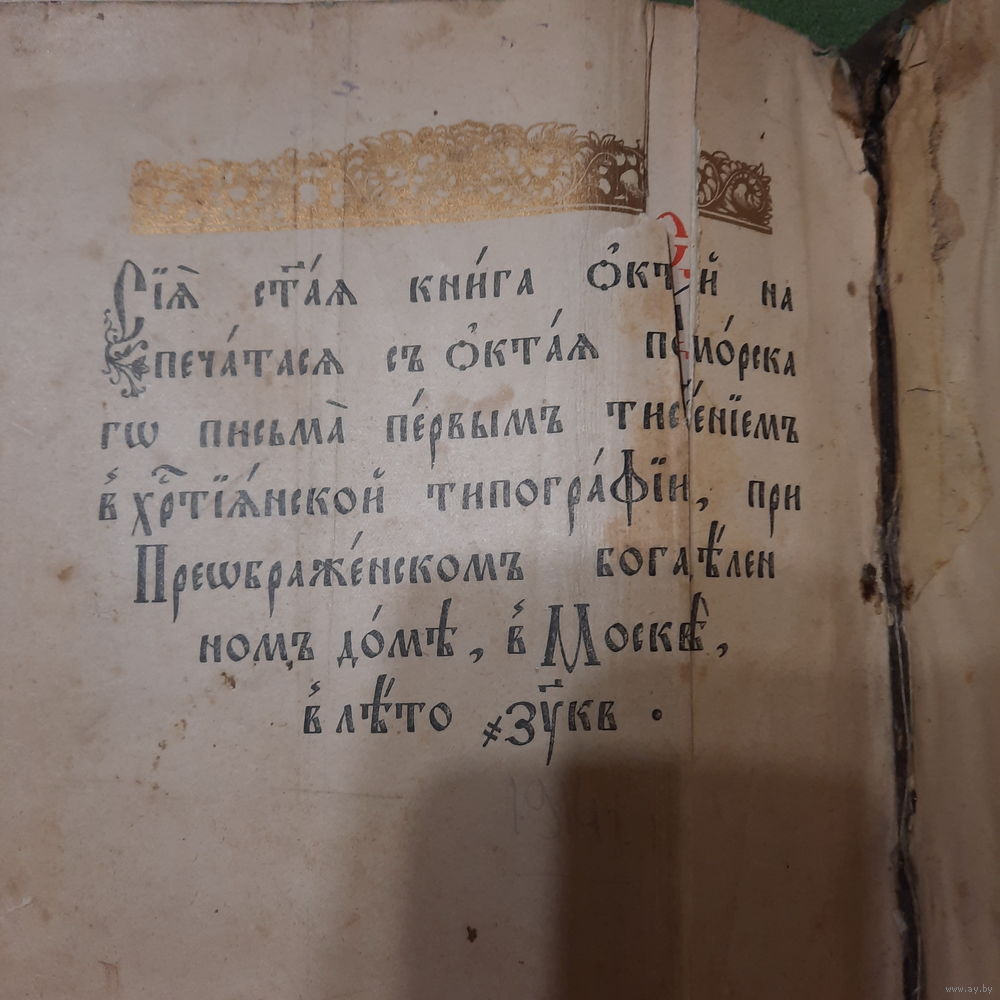 Сїѧ̀ ст҃а́ѧ кни́га Ѻ҆кт й на
печа́тасѧ съ Ѻ҆кта́ѧ помо́рска
гѡ письма̀ пе́рвымъ тисе́нїемъ
в̾ хрⷭ҇тїѧ́нской типогра́фїи, при
Преѡбраже́нскомъ богадѣ́лен
номъ до́мѣ, в̾ Москвѣ̀,
в̾ лѣ́то ҂зу҃кв .
www.ay.by